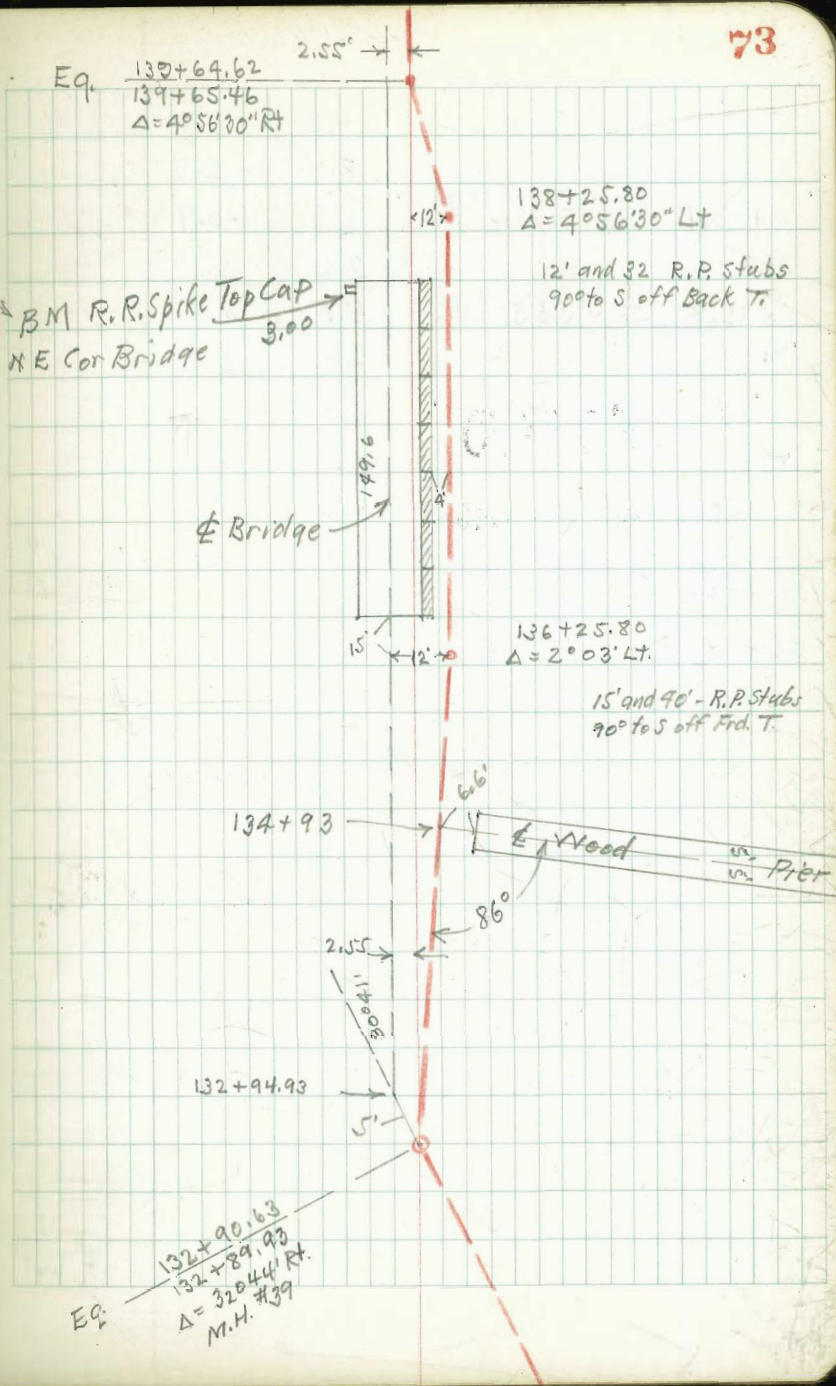 73
2.55'
Eq. 139+64.62
139+65.46
Δ=4°56'30" Rt
138+25.80
Δ=4°56'30" Lt
12'
12' and 32 R.P. Stubs
90° to S off Back T.
BM R.R. Spike Top Cap
3.00
N E Cor Bridge
149.6
4'
℄ Bridge
15'
12'
136+25.80
Δ=2°03' Lt.
15' and 40' - R.P. Stubs
90° to S off Frd. T.
6.6'
134+93
℄ Wood Pier
5'
5'
86°
2.55
30°41'
132+94.93
5'
Eq. 132+90.63
132+89.93
Δ=32°44' Rt.
M.H. #39